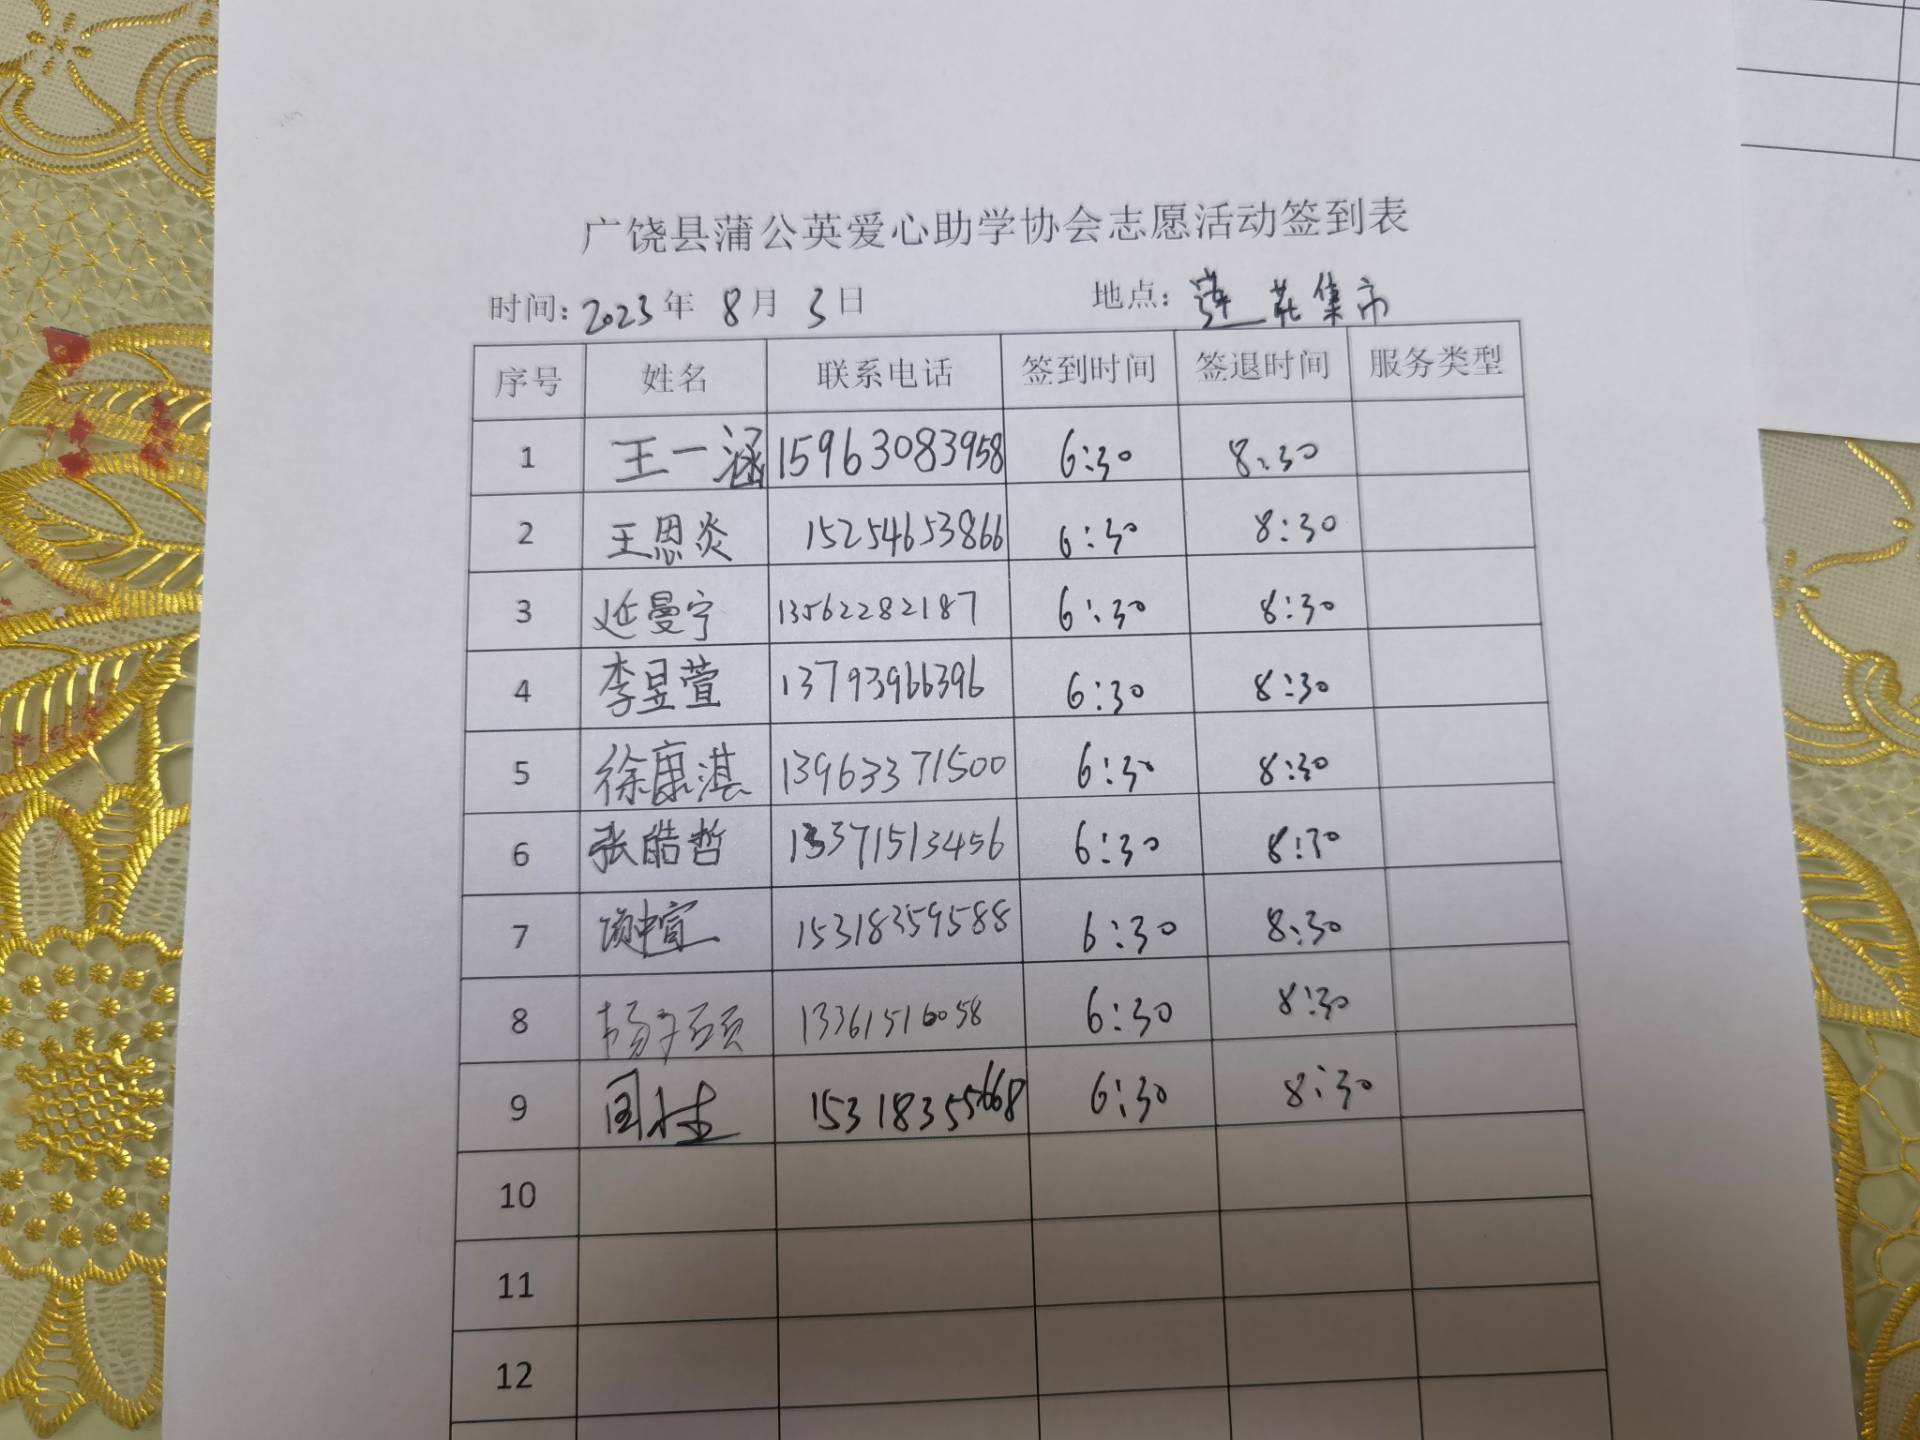 广饶县蒲公英爱心助学协会志愿活动签到表
时间: 2023年 8月 3日 地点: 莲花集市
序号 姓名 联系电话 签到时间 签退时间 服务类型
1 王一涵 15963083958 6:30 8:30
2 王恩炎 15254653866 6:30 8:30
3 延曼宁 13562282187 6:30 8:30
4 李昱萱 13793966396 6:30 8:30
5 徐康淇 13963371500 6:30 8:30
6 张皓哲 13371513456 6:30 8:30
7 15318359588 6:30 8:30
8 杨子硕 13361516058 6:30 8:30
9 15318355668 6:30 8:30
10
11
12